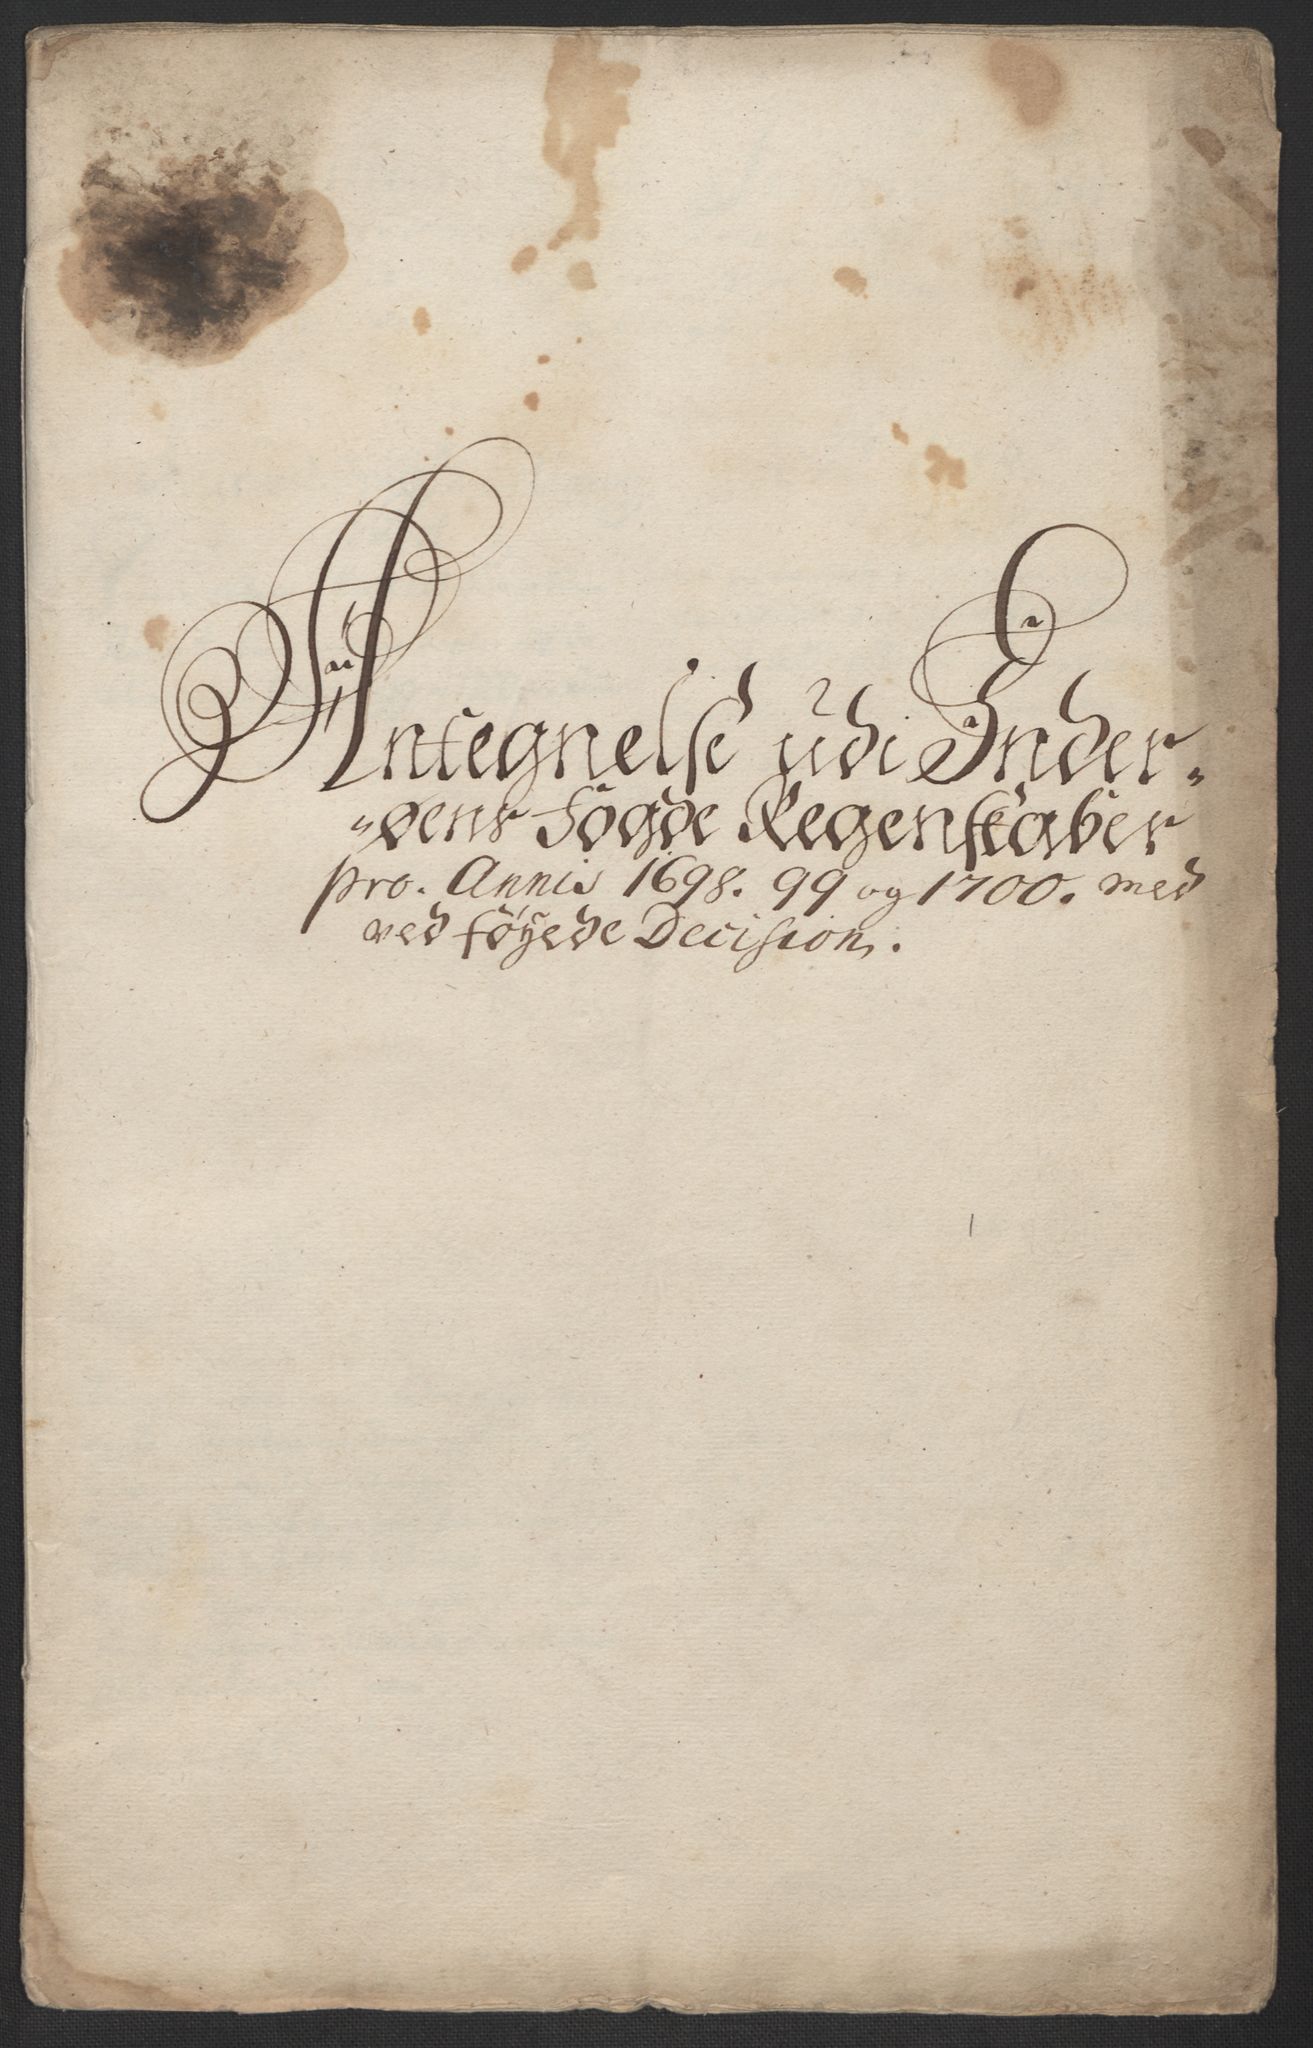 Antegnelse udi Inder-
-øens Fogde Regenskaber
pro. Annis 1698. 99 og 1700. med
ved föyede Decision.